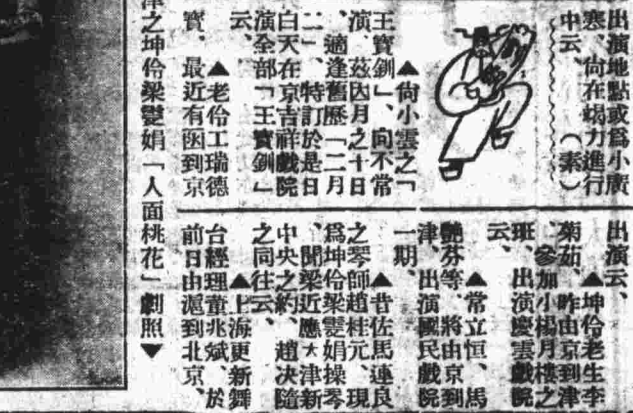 出演地點或爲小廣
寒、尙在竭力進行
中云、　（素）
▲尙小雲之「
王寶釧」、向不常
演、茲因月之十日
、適逢舊歷「二月
二」、特訂於是日
白天在京吉祥戲院
演全部「王寶釧」
云、
▲老伶工瑞德
寶、最近有函到京
出演云、
▲坤伶老生李
菊茹、昨由京到津
、參加小楊月樓之
班、出演慶雲戲院
云、
▲常立恒、馬
艷芬等、將由京到
津、出演國民戲院
一期、
▲昔佐馬連良
之琴師趙桂元、現
爲坤伶梁雯娟操琴
、聞梁近應★津新
中央之約、趙决隨
之同往云、
▲上海更新舞
台經理董兆斌、於
前日由滬到北京、
津之坤伶梁雯娟「人面桃花」劇照▼